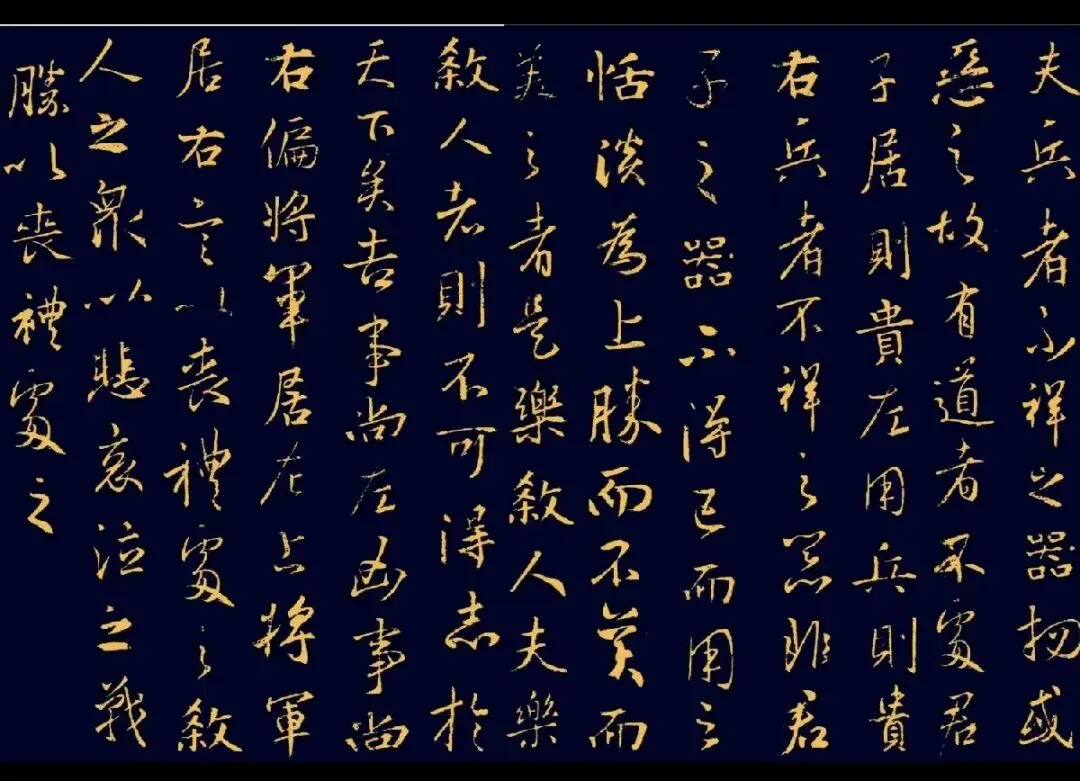 夫兵者不祥之器物或
惡之故有道者不處君
子居則貴左用兵則貴
右兵者不祥之器非君
子之器不得已而用之
恬淡為上勝而不美而
美之者是樂殺人夫樂
殺人者則不可得志於
天下矣吉事尚左凶事尚
右偏將軍居左上將軍
居右言以喪禮處之殺
人之眾以悲哀泣之戰
勝以喪禮處之